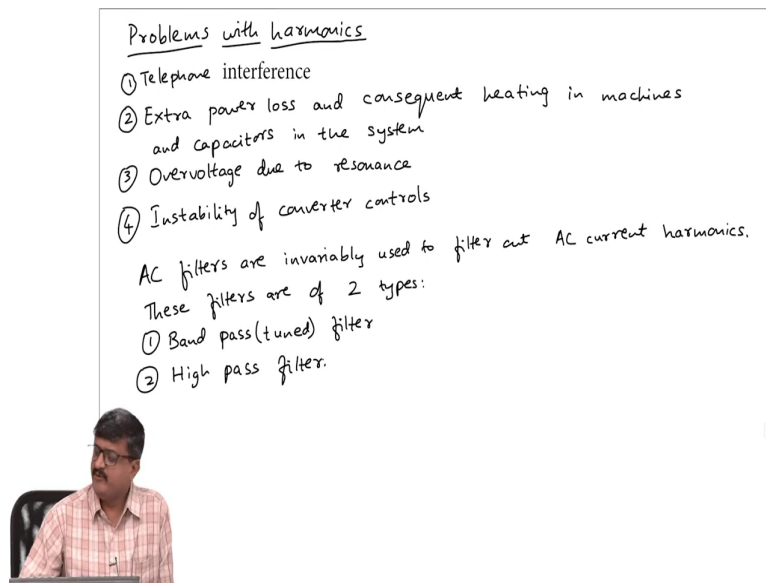 Problems with harmonics
① Telephone interference
② Extra power loss and consequent heating in machines
and capacitors in the system
③ Overvoltage due to resonance
④ Instability of converter controls
AC filters are invariably used to filter out AC current harmonics.
These filters are of 2 types:
① Band pass (tuned) filter
② High pass filter.